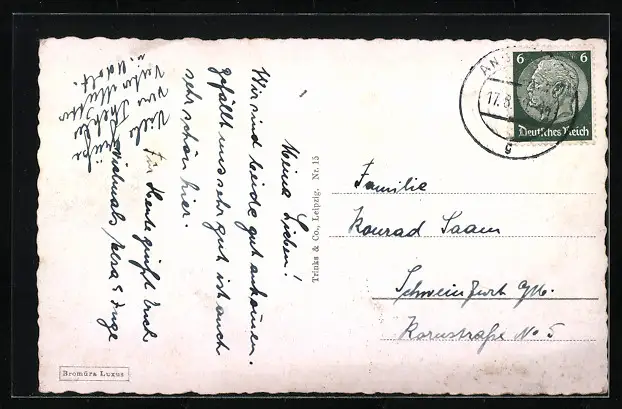 Meine Lieben!
Wir sind beide gut ankommen.
Gefällt uns sehr gut ist auch
sehr schön hier.
Für Heute grüßt Euch
vielmals
Viele
Grüße
von
Trinks & Co., Leipzig. Nr. 15
6 6
Deutsches Reich
17.
g
Familie
Konrad Saam
Schweinfurt
Kornstraße No 5
Bromüra Luxus